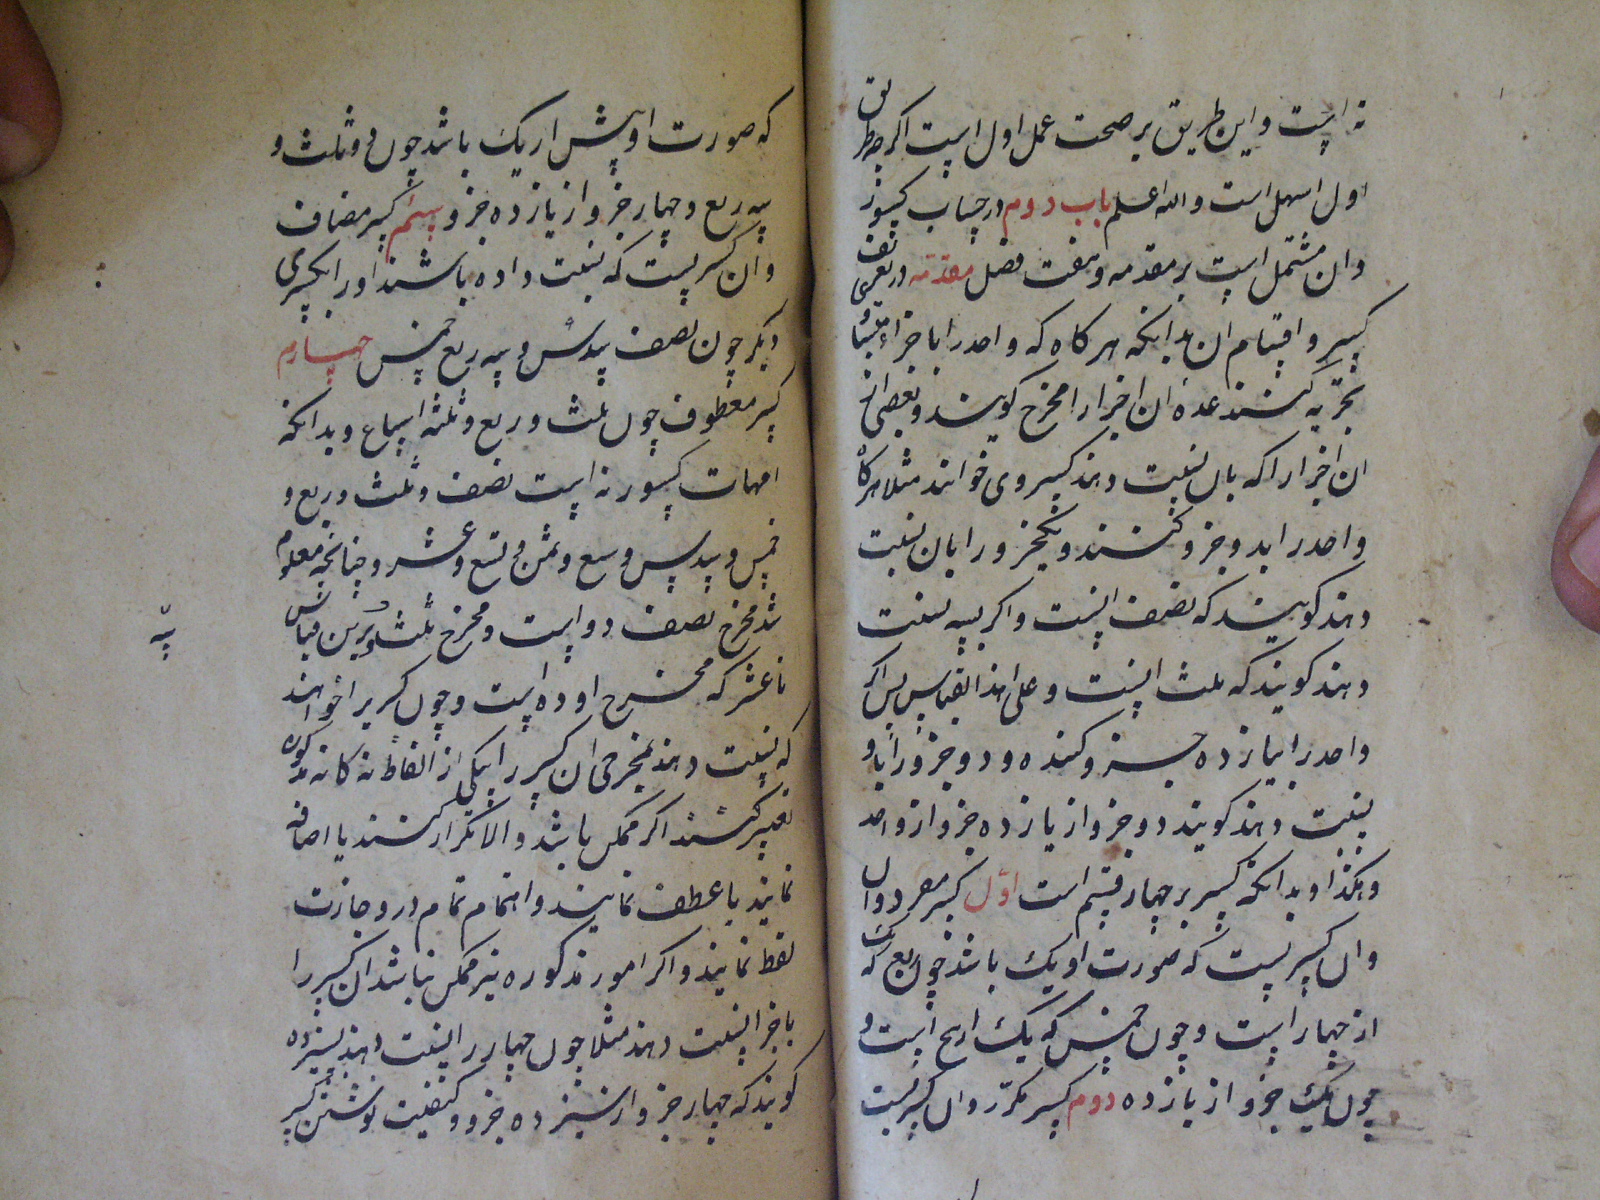 نه است و این طریق بر صحت عمل اول است اکر چه طریق
اول اسهل است والله اعلم باب دوم در حساب کسور
و ان مشتمل است بر مقدمه و هفت فصل مقدمه در تعریف
کسر و اقسام ان بدانکه هر کاه که واحد را باجزاء متساویه
تجزیه کنند عده ان اجزا را مخرج کویند و بعضی از
ان اجزا را که بان نسبت دهند کسر وی خوانند مثلا هرکاه
واحد را بدو جزو کنند و یکجزو را بان نسبت
دهند کویند که نصف است و اکر بسه نسبت
دهند کویند که ثلث است و علی هذا القیاس پس اکر
واحد را بیازده جزو کنند و دو جزو را باو
نسبت دهند کویند دو جزو از یازده جزو از واحد
و هکذا و بدانکه کسر بر چهار قسم است اول کسر مفرد و ان
وان کسریست که صورت او یک باشد چون ربع که یک
از چهار است و چون خمس که یک از پنج است و
چون یک جزو از یازده دوم کسر مکرر وان کسریست
که صورت او بیش از یک باشد چون دو ثلث و
سه ربع و چهار جزو از یازده جزو سیم کسر مضاف
و ان کسریست که نسبت داده باشند او را بکسری
دیکر چون نصف سدس و سه ربع خمس چهارم
کسر معطوف چون ثلث و ربع و ثلثه اسباع و بدانکه
امهات کسور نه است نصف و ثلث و ربع و
خمس و سدس و سبع و ثمن و تسع و عشر و چنانچه معلوم
شد مخرج نصف دو است و مخرج ثلث سه و برین قیاس
تا عشر که مخرج او ده است و چون کسر را خواهند
که نسبت دهند بمخرجی ان کسر را بیکی از الفاظ نه کانه مذکوره
تعبیر کنند اکر ممکن باشد و الا تکرار کنند یا اضافه
نمایند یا عطف نمایند و اهتمام تمام در وجازت
لفظ نمایند و اکر امور مذکوره نیز ممکن نباشد ان کسر را
باجزا نسبت دهند مثلا چون چهار را نسبت دهند بسیزده
کویند که چهار جزو از سیزده جزو و کیفیت نوشتن کسر
سه